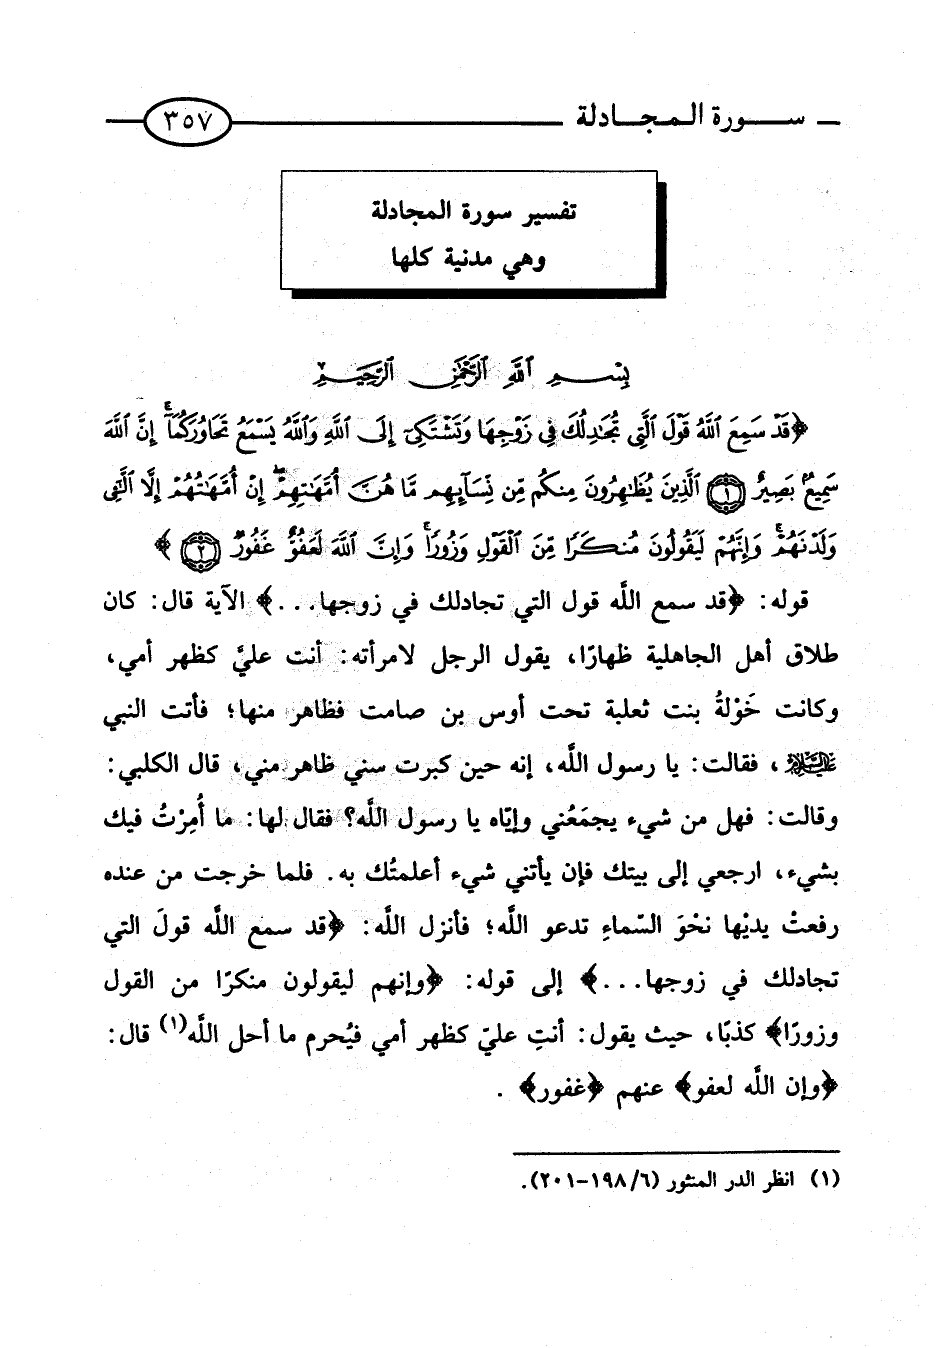 سورة المجادلة
٣٥٧
تفسير سورة المجادلة
وهي مدنية كلها
بِسْمِ ٱللَّهِ ٱلرَّحْمَٰنِ ٱلرَّحِيمِ
﴿قَدْ سَمِعَ ٱللَّهُ قَوْلَ ٱلَّتِي تُجَٰدِلُكَ فِي زَوْجِهَا وَتَشْتَكِيٓ إِلَى ٱللَّهِ وَٱللَّهُ يَسْمَعُ تَحَاوُرَكُمَآ ۚ إِنَّ ٱللَّهَ
سَمِيعٌۢ بَصِيرٌ ۝١ ٱلَّذِينَ يُظَٰهِرُونَ مِنكُم مِّن نِّسَآئِهِم مَّا هُنَّ أُمَّهَٰتِهِمْ ۖ إِنْ أُمَّهَٰتُهُمْ إِلَّا ٱلَّٰٓـِٔي
وَلَدْنَهُمْ ۚ وَإِنَّهُمْ لَيَقُولُونَ مُنكَرًا مِّنَ ٱلْقَوْلِ وَزُورًا ۚ وَإِنَّ ٱللَّهَ لَعَفُوٌّ غَفُورٌ ۝٢﴾
قوله: ﴿قد سمع اللَّه قول التي تجادلك في زوجها...﴾ الآية قال: كان
طلاق أهل الجاهلية ظهارًا، يقول الرجل لامرأته: أنت عليَّ كظهر أمي،
وكانت خَوْلةُ بنت ثعلبة تحت أوس بن صامت فظاهر منها؛ فأتت النبي
عليه السلام، فقالت: يا رسول اللَّه، إنه حين كبرت سني ظاهر مني، قال الكلبي:
وقالت: فهل من شيء يجمَعُني وإيّاه يا رسول اللَّه؟ فقال لها: ما أُمِرْتُ فيك
بشيء، ارجعي إلى بيتك فإن يأتني شيء أعلمتُك به. فلما خرجت من عنده
رفعتْ يديْها نحْوَ السّماءِ تدعو اللَّه؛ فأنزل اللَّه: ﴿قد سمع اللَّه قولَ التي
تجادلك في زوجها...﴾ إلى قوله: ﴿وإنهم ليقولون منكرًا من القول
وزورًا﴾ كذبًا، حيث يقول: أنتِ عليّ كظهر أمي فيُحرم ما أحل اللَّه(١) قال:
﴿وإن اللَّه لعفو﴾ عنهم ﴿غفور﴾.
(١) انظر الدر المنثور (٦/ ١٩٨-٢٠١).